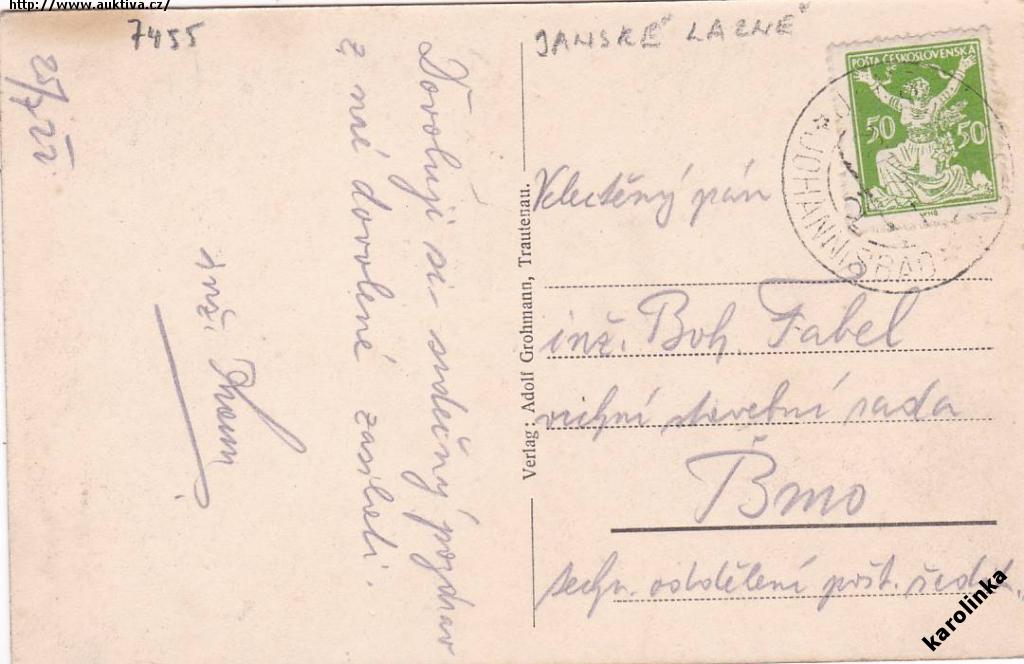 http://www.auktiva.cz/
7455
JANSKÉ LÁZNĚ
POŠTA ČESKOSLOVENSKÁ
50 50
JOHANNISBAD
Velectěný pán
inž. Boh. Fabel
vrchní stavební rada
Brno
techn. oddělení pošt.
Verlag: Adolf Grohmann, Trautenau.
Dovoluji si srdečný pozdrav
z mé dovolené zaslati.
inž.
karolinka